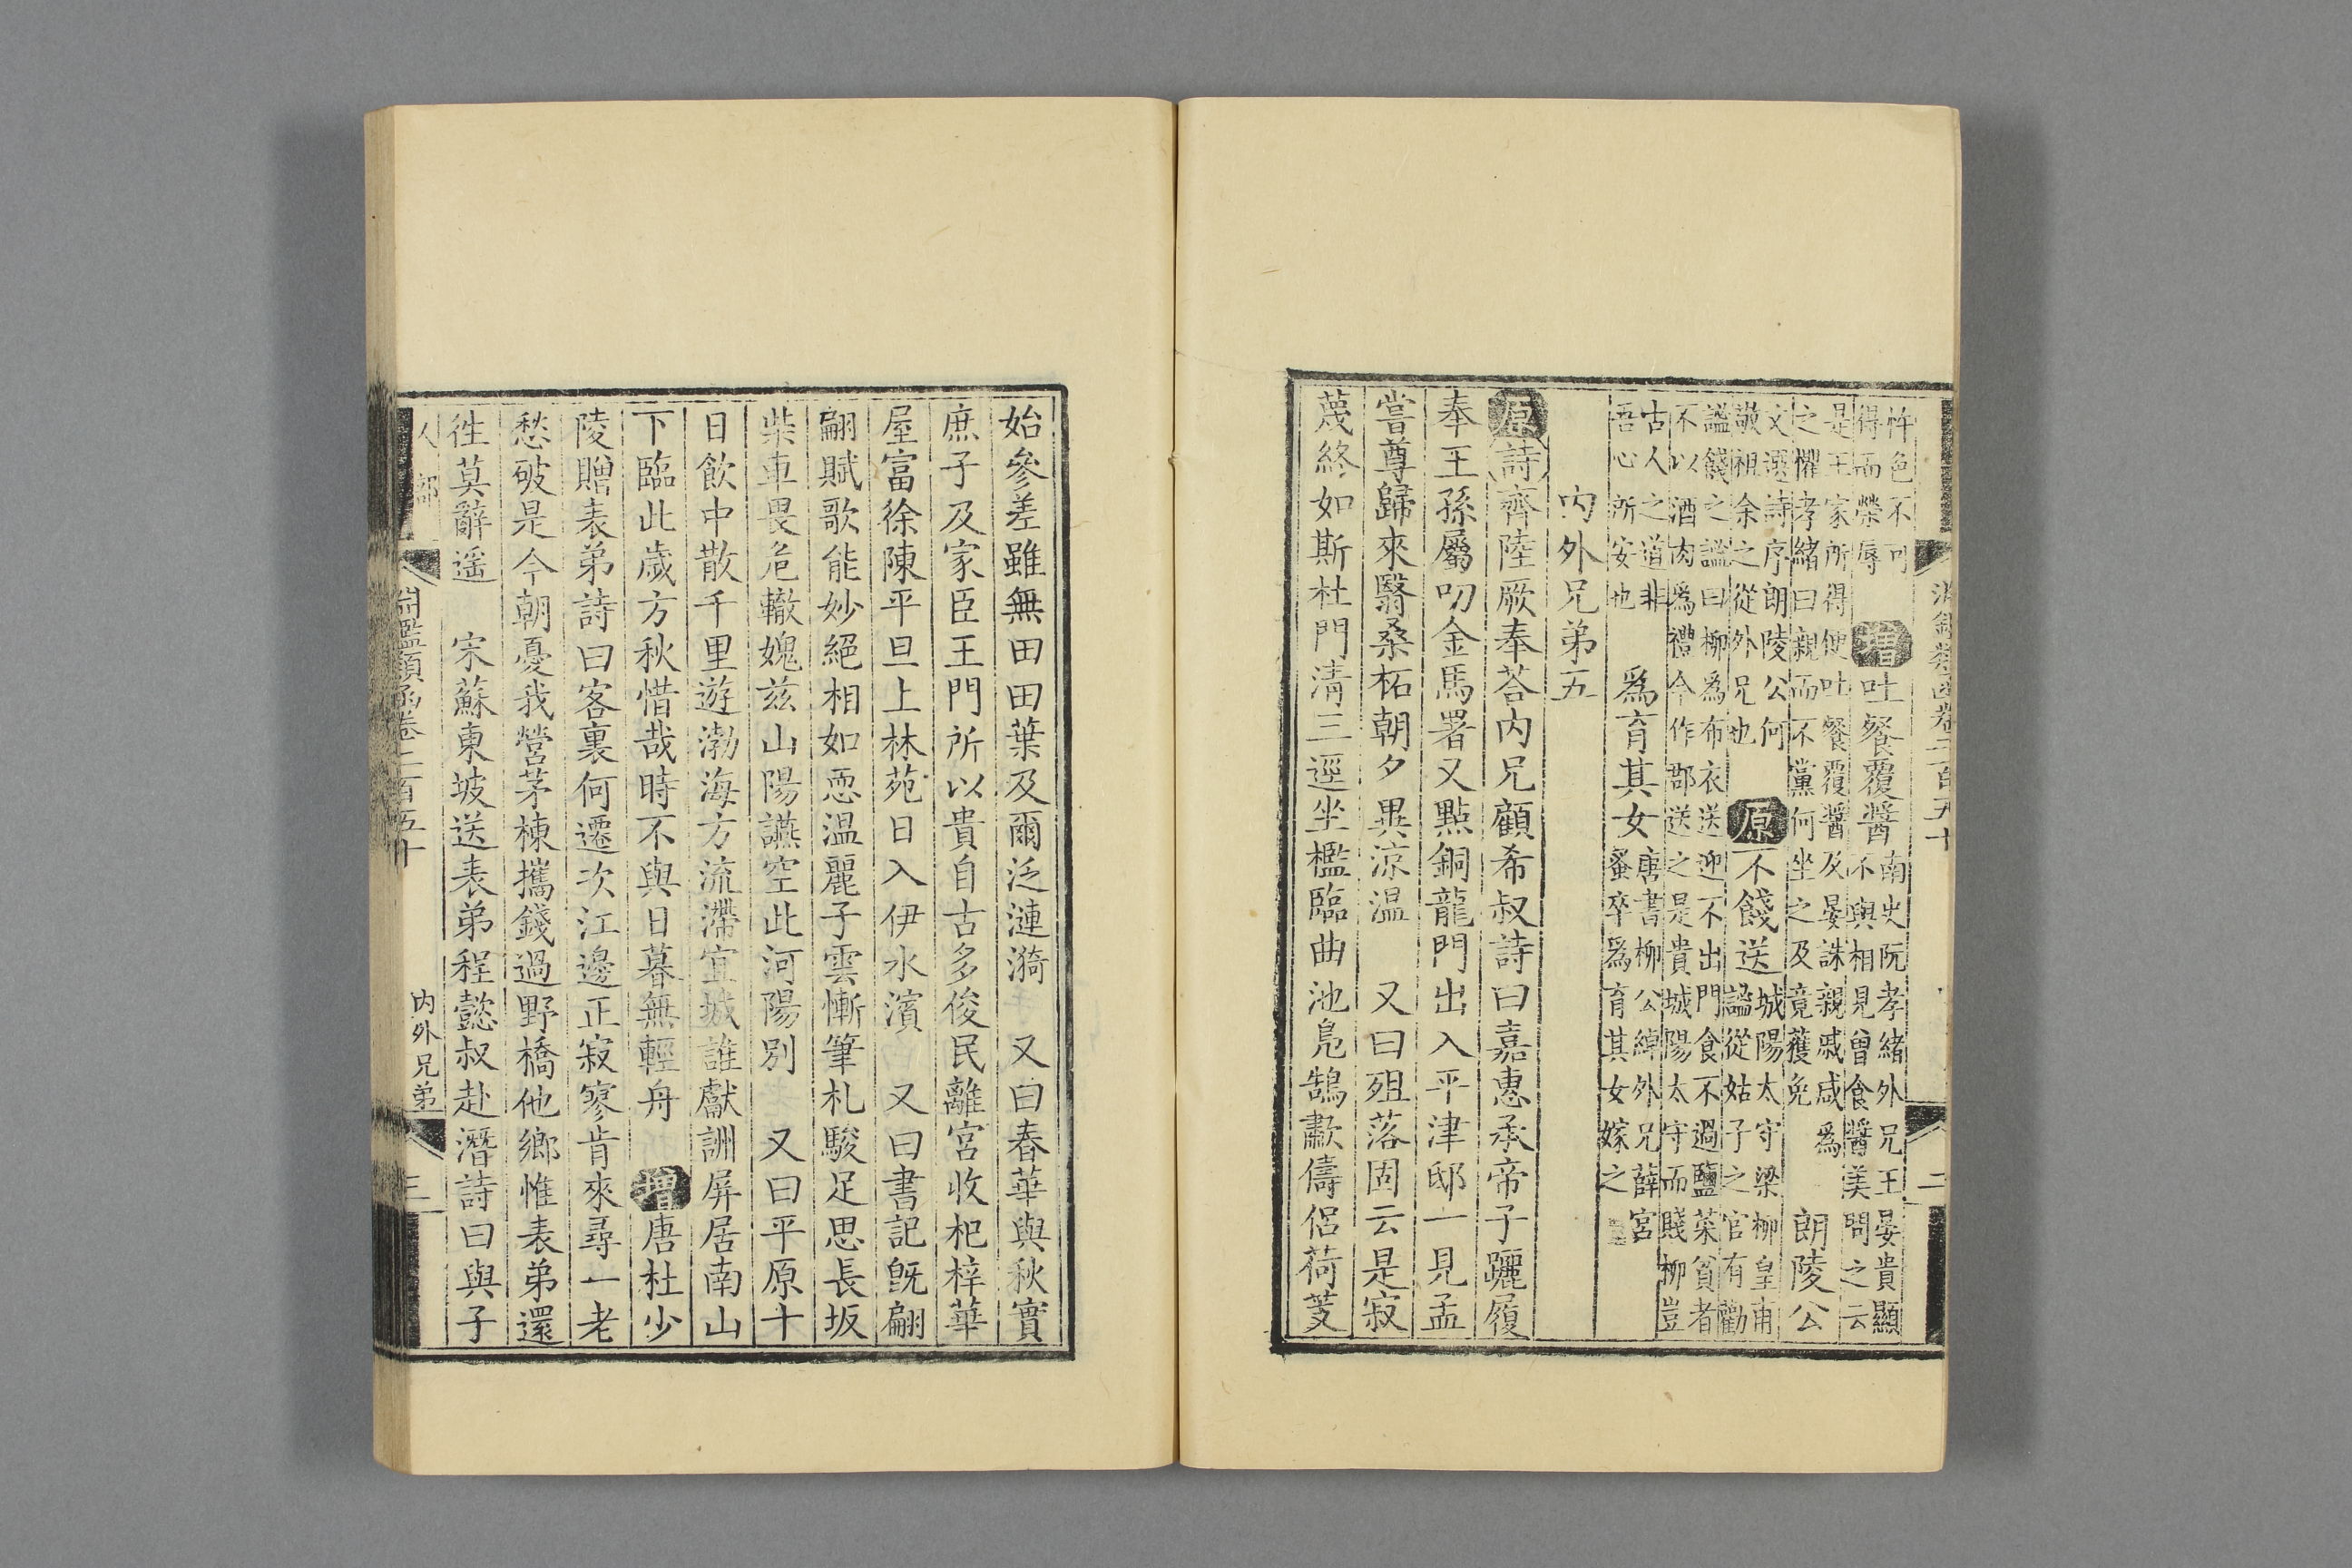 淵鑑類函卷二百五十
二
忤色不可
得而榮辱
增吐餐覆醬
南史阮孝緒外兄王晏貴顯
不與相見曾食醬美問之云
是王家所得便吐餐覆醬及晏誅親戚咸爲
之懼孝緒曰親而不黨何坐之及竟獲免
朗陵公
文選詩序朗陵公何
敬祖余之從外兄也
原不餞送
城陽太守梁柳皇甫
謐從姑子之官有勸
謐餞之謐曰柳爲布衣送迎不出門食不過鹽菜貧者
不以酒肉爲禮今作郡送之是貴城陽太守而賤柳豈
古人之道非
吾心所安也
爲育其女
唐書柳公綽外兄薛宮
蚤卒爲育其女嫁之
内外兄弟五
原詩齊陸厥奉荅内兄顧希叔詩曰嘉惠承帝子躧履
奉王孫屬叨金馬署又點銅龍門出入平津邸一見孟
嘗尊歸來翳桑柘朝夕異涼温 又曰殂落固云是寂
蔑終如斯杜門清三逕坐檻臨曲池鳧鵠嘯儔侣荷芰
始參差雖無田田葉及爾泛漣漪 又曰春華與秋實
庶子及家臣王門所以貴自古多俊民離宮收杞梓華
屋富徐陳平旦上林苑日入伊水濱 又曰書記旣翩
翩賦歌能妙絕相如恧温麗子雲慚筆札駿足思長坂
柴車畏危轍媿兹山陽讌空此河陽別 又曰平原十
日飲中散千里遊渤海方流滯宜城誰獻詶屏居南山
下臨此歲方秋惜哉時不與日暮無輕舟 增唐杜少
陵贈表弟詩曰客裏何遷次江邊正寂寥肯來尋一老
愁破是今朝憂我營茅棟攜錢過野橋他鄉惟表弟還
徃莫辭遥 宋蘇東坡送表弟程懿叔赴潛詩曰與子
人部
淵鑑類函卷二百五十
内外兄弟
三